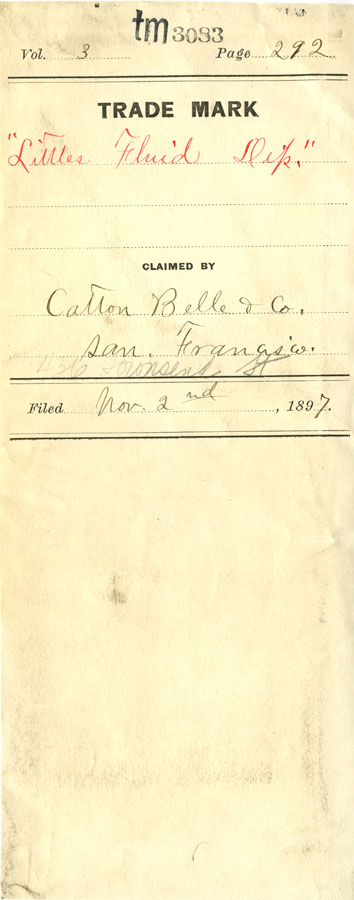 tm 3083
Vol. 3 Page 292
TRADE MARK
"Littles Fluid Dip."
CLAIMED BY
Catton Belle & Co.
San. Francisco.
426 Townsend St
Filed Nov. 2nd, 1897.